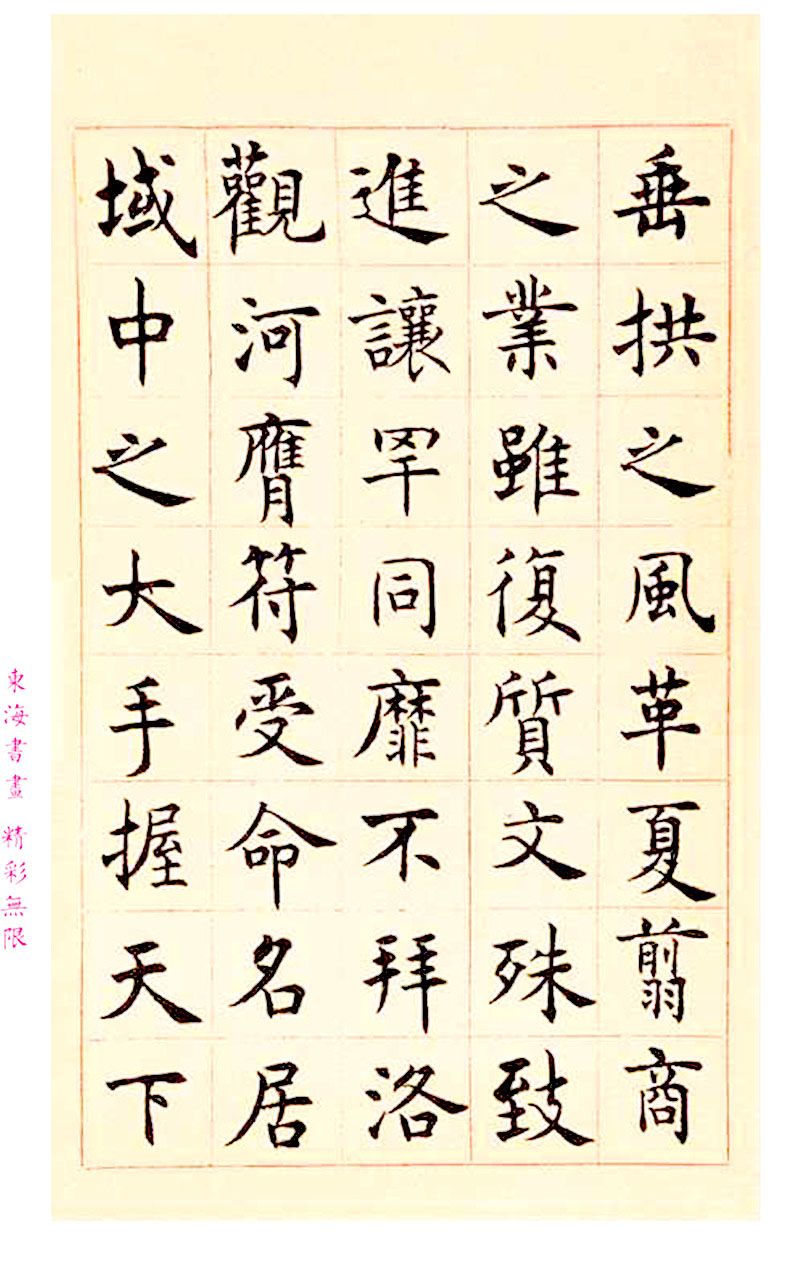 垂拱之風革夏翦商
之業雖復質文殊致
進讓罕同靡不拜洛
觀河膺符受命名居
域中之大手握天下
東海書畫 精彩無限